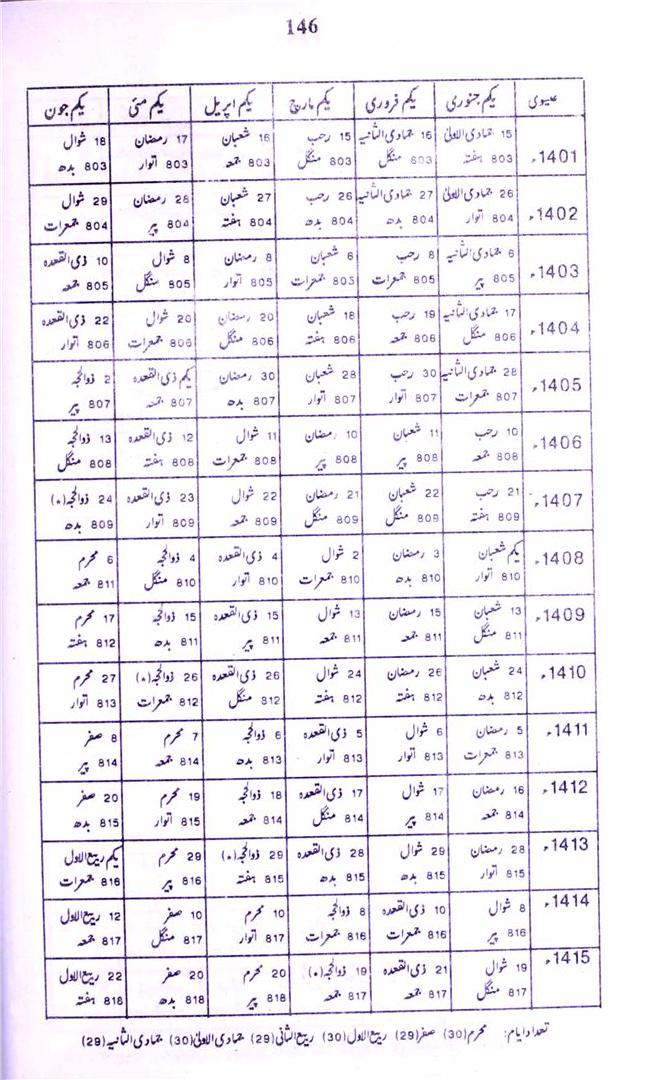 146
عیسوی یکم جنوری یکم فروری یکم مارچ یکم اپریل یکم مئی یکم جون
1401ء 15 جمادی الاولیٰ 16 جمادی الثانیہ 15 رجب 16 شعبان 17 رمضان 18 شوال
803 ہفتہ 803 منگل 803 منگل 803 جمعہ 803 اتوار 803 بدھ
1402ء 26 جمادی الاولیٰ 27 جمادی الثانیہ 26 رجب 27 شعبان 28 رمضان 29 شوال
804 اتوار 804 بدھ 804 بدھ 804 ہفتہ 804 پیر 804 جمعرات
1403ء 6 جمادی الثانیہ 8 رجب 6 شعبان 8 رمضان 8 شوال 10 ذی القعدہ
805 پیر 805 جمعرات 805 جمعرات 805 اتوار 805 منگل 805 جمعہ
1404ء 17 جمادی الثانیہ 19 رجب 18 شعبان 20 رمضان 20 شوال 22 ذی القعدہ
806 منگل 806 جمعہ 806 ہفتہ 806 منگل 806 جمعرات 806 اتوار
1405ء 28 جمادی الثانیہ 30 رجب 28 شعبان 30 رمضان یکم ذی القعدہ 2 ذوالحجہ
807 جمعرات 807 اتوار 807 اتوار 807 بدھ 807 جمعہ 807 پیر
1406ء 10 رجب 11 شعبان 10 رمضان 11 شوال 12 ذی القعدہ 13 ذوالحجہ
808 جمعہ 808 پیر 808 پیر 808 جمعرات 808 ہفتہ 808 منگل
1407ء 21 رجب 22 شعبان 21 رمضان 22 شوال 23 ذی القعدہ 24 ذوالحجہ (*)
809 ہفتہ 809 منگل 809 منگل 809 جمعہ 809 اتوار 809 بدھ
1408ء یکم شعبان 3 رمضان 2 شوال 4 ذی القعدہ 4 ذوالحجہ 6 محرم
810 اتوار 810 بدھ 810 جمعرات 810 اتوار 810 منگل 811 جمعہ
1409ء 13 شعبان 15 رمضان 13 شوال 15 ذی القعدہ 15 ذوالحجہ 17 محرم
811 منگل 811 جمعہ 811 جمعہ 811 پیر 811 بدھ 812 ہفتہ
1410ء 24 شعبان 26 رمضان 24 شوال 26 ذی القعدہ 26 ذوالحجہ (*) 27 محرم
812 بدھ 812 ہفتہ 812 ہفتہ 812 منگل 812 جمعرات 813 اتوار
1411ء 5 رمضان 6 شوال 5 ذی القعدہ 6 ذوالحجہ 7 محرم 8 صفر
813 جمعرات 813 اتوار 813 اتوار 813 بدھ 814 جمعہ 814 پیر
1412ء 16 رمضان 17 شوال 17 ذی القعدہ 18 ذوالحجہ 19 محرم 20 صفر
814 جمعہ 814 پیر 814 منگل 814 جمعہ 815 اتوار 815 بدھ
1413ء 28 رمضان 29 شوال 28 ذی القعدہ 29 ذوالحجہ (*) 29 محرم یکم ربیع الاول
815 اتوار 815 بدھ 815 بدھ 815 ہفتہ 816 پیر 816 جمعرات
1414ء 8 شوال 10 ذی القعدہ 8 ذوالحجہ 10 محرم 10 صفر 12 ربیع الاول
816 پیر 816 جمعرات 816 جمعرات 817 اتوار 817 منگل 817 جمعہ
1415ء 19 شوال 21 ذی القعدہ 19 ذوالحجہ (*) 20 محرم 20 صفر 22 ربیع الاول
817 منگل 817 جمعہ 817 جمعہ 818 پیر 818 بدھ 818 ہفتہ
تعداد ایام: محرم (30) صفر (29) ربیع الاول (30) ربیع الثانی (29) جمادی الاولیٰ (30) جمادی الثانیہ (29)